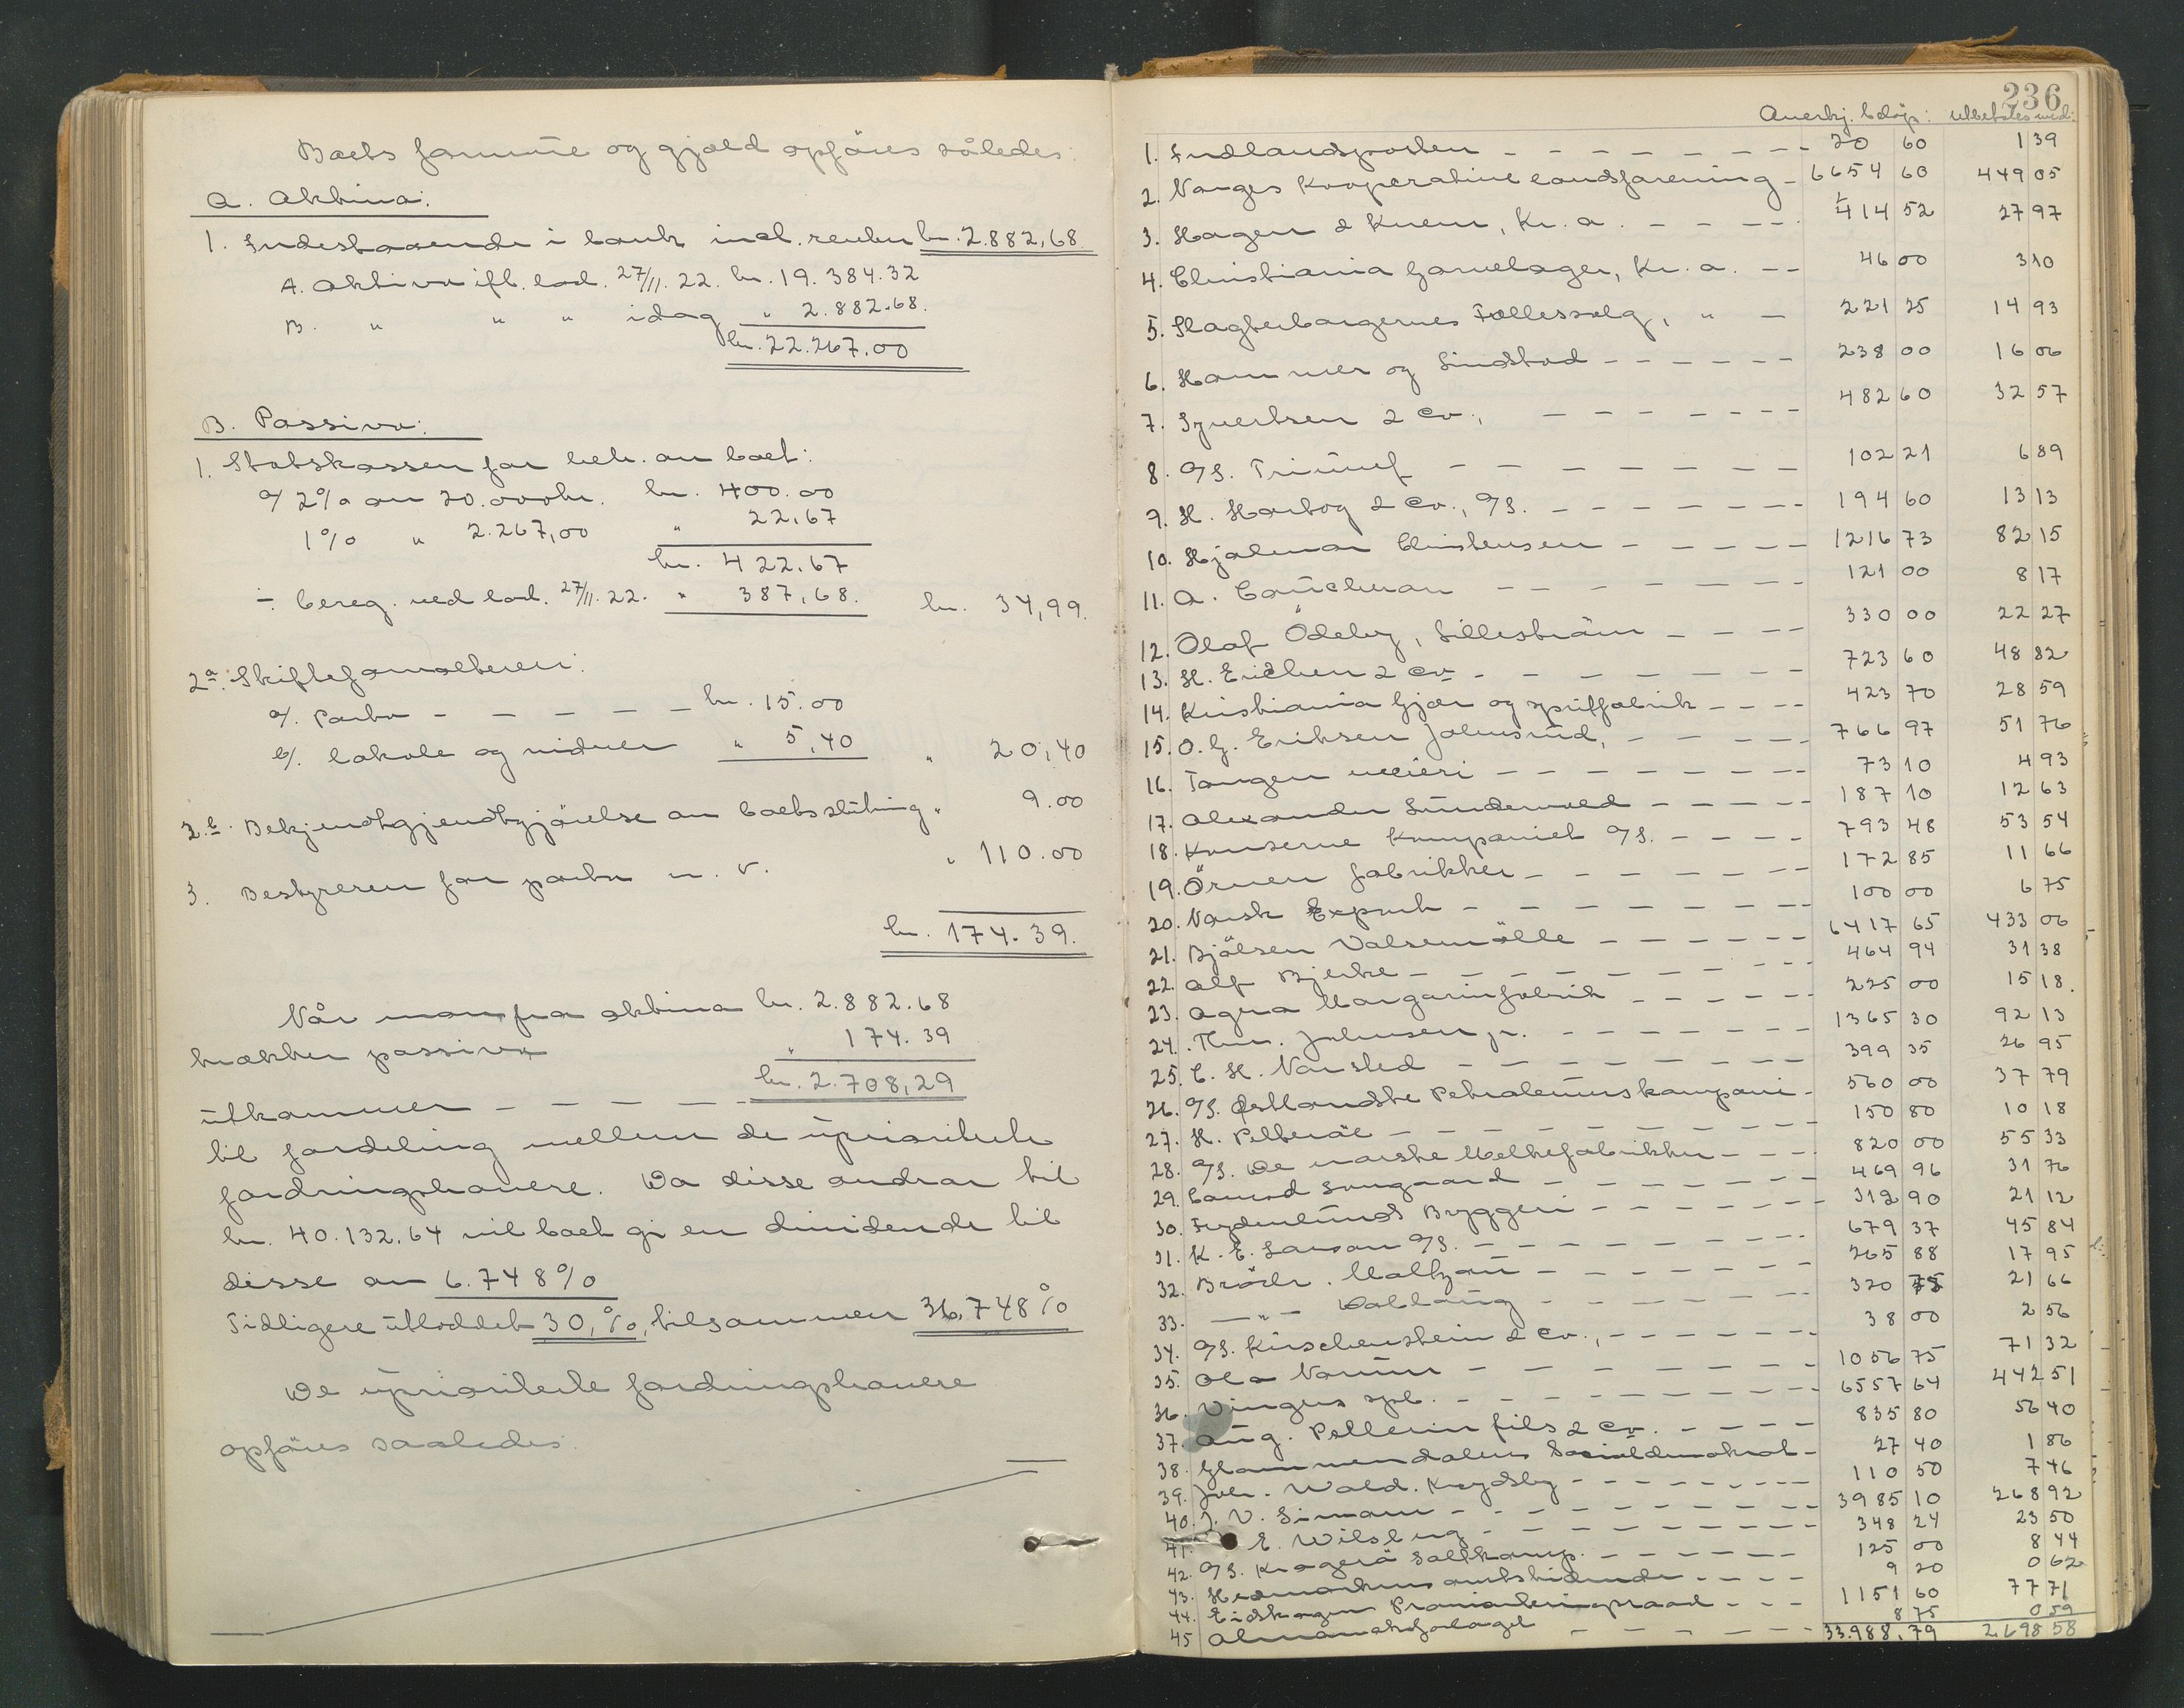 Boets formue og gjæld opføres således:
A. Aktiva:
1. Indestaaende i bank incl. renter kr. 2.882,68
A. Aktiva ifl. lod. 27/11.22. kr. 19.384.32
B. " " " idag " 2.882.68.
kr. 22.267.00
B. Passiva:
1. Statskassen for beh. av boet:
a/ 2% av 20.000 kr. kr. 400.00
1% " 2.267,00 " 22,67
kr. 422.67
÷ bereg. ved lod. 27/11.22. " 387,68. kr. 34,99.
2a. Skifteforvalteren:
a/. Porto - - - - - kr. 15.00
b/. lokale og vidner " 5,40 " 20,40
2.b. Bekjendtgjendtgjörelse av boets slutning " 9.00
3. Bestyreren for porto m. v. " 110.00
kr. 174.39.
Når man fra aktiva kr. 2.882.68
trækker passiva " 174.39
utkommer - - - - - kr. 2.708,29
til fordeling mellem de uprioriterte
fordringshavere. Da disse andrar til
kr. 40.132,64 vil boet gi en dividende til
disse av 6.748%
Tidligere utloddet 30,%, tilsammen 36,748%
De upriorterte fordringshavere
opføres saaledes:
236
Anerkj. beløp: utbetales med:
1. Indlandsposten - - - 20 60 1 39
2. Norges Kooperative landsforening - 6654 60 449 05
3. Hagen & Knem, Kr.a. - - - 414 52 27 97
4. Christiania Garnlager, Kr.a. - - 46 00 3 10
5. Slagterborgernes Fællessalg, " - 221 25 14 93
6. Hammer og Lindstad - - - 238 00 16 06
7. Syvertsen & Co., - - - 482 60 32 57
8. A/S. Triumf - - - 102 21 6 89
9. H. Hartog & Co., A/S. - - - 194 60 13 13
10. Hjalmar Christensen - - - 1216 73 82 15
11. A. - - - 121 00 8 17
12. Olaf Ödeby, Lillestrøm - - - 330 00 22 27
13. H. Erichsen & Co - - - 723 60 48 82
14. Kristiania Gjær og spritfabrik - - - 423 70 28 59
15. O. G. Eriksen Johnsrud, - - - 766 97 51 76
16. Tangen meieri - - - 73 10 4 93
17. Alexander - - - 187 10 12 63
18. Konserve Kompaniet A/S. - - - 793 48 53 54
19. Örnen fabrikker - - - 172 85 11 66
20. Norsk Export - - - 100 00 6 75
21. Bjölsen Valsemölle - - - 6417 65 433 06
22. Alf Bjerke - - - 464 94 31 38
23. Agra Margarinfabrik - - - 225 00 15 18.
24. Thv. Johnsen jr. - - - 1365 30 92 13
25. C. H. Norsted - - - 399 35 26 95
26. A/S. Østlandske Petroleumskompani - 560 00 37 79
27. H. - - - 150 80 10 18
28. A/S. De norske Melkefabrikker - - - 820 00 55 33
29. - - - 469 96 31 76
30. Frydenlunds Bryggeri - - - 312 90 21 12
31. K. E. Larson A/S. - - - 679 37 45 84
32. Brödr. - - - 265 88 17 95
33. - " - Dobloug - - - 320 75 21 66
34. A/S. Kirschenstein & Co., - - - 38 00 2 56
35. Ola Norum - - - 1056 75 71 32
36. Vingers spb. - - - 6557 64 442 51
37. Aug. Pellerin fils & Co. - - - 835 80 56 40
38. Glommendalens Socialdemokrat - 27 40 1 86
39. Joh. Wald. - - - 110 50 7 46
40. J. V. - - - 3985 10 268 92
41. E. Wilsberg - - - 348 24 23 50
42. A/S. Kragerø Saltkomp. - - - 125 00 8 44
43. Hedmarkens amtstidende - - - 9 20 0 62
44. Eidskogen Provianteringsraad - - - 1151 60 77 71
45 Almanakforlaget - - - 8 75 0 59
33.988,79 2.698 58